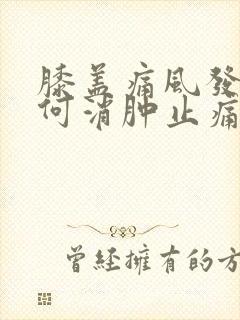 膝盖痛風發
何消肿止痛
曾經擁有的方